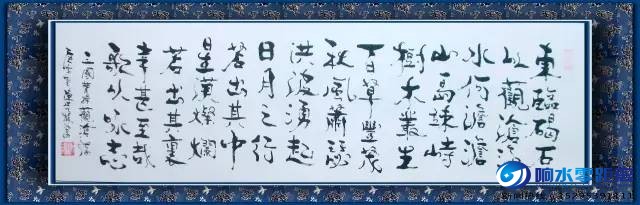 東臨碣石
以觀滄海
水何澹澹
山島竦峙
樹木叢生
百草豐茂
秋風蕭瑟
洪波湧起
日月之行
若出其中
星漢燦爛
若出其裏
幸甚至哉
歌以詠志
三國曹操觀滄海
响水零距離